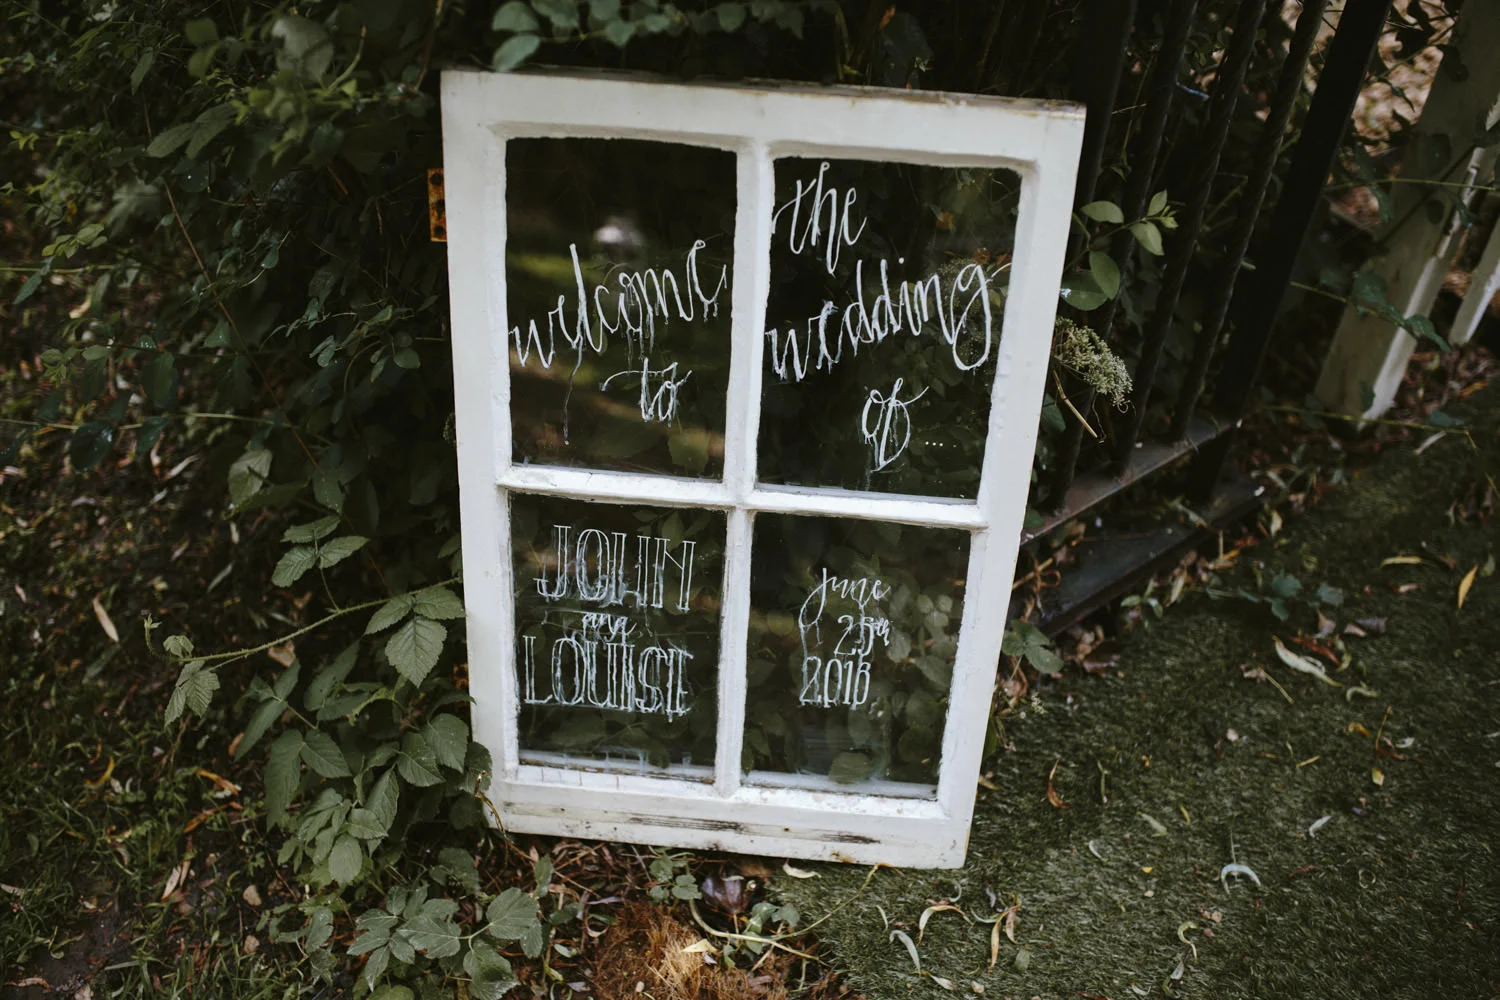 welcome
to
the
wedding
of....
JOHN
and
LOUISE
June
25th
2016